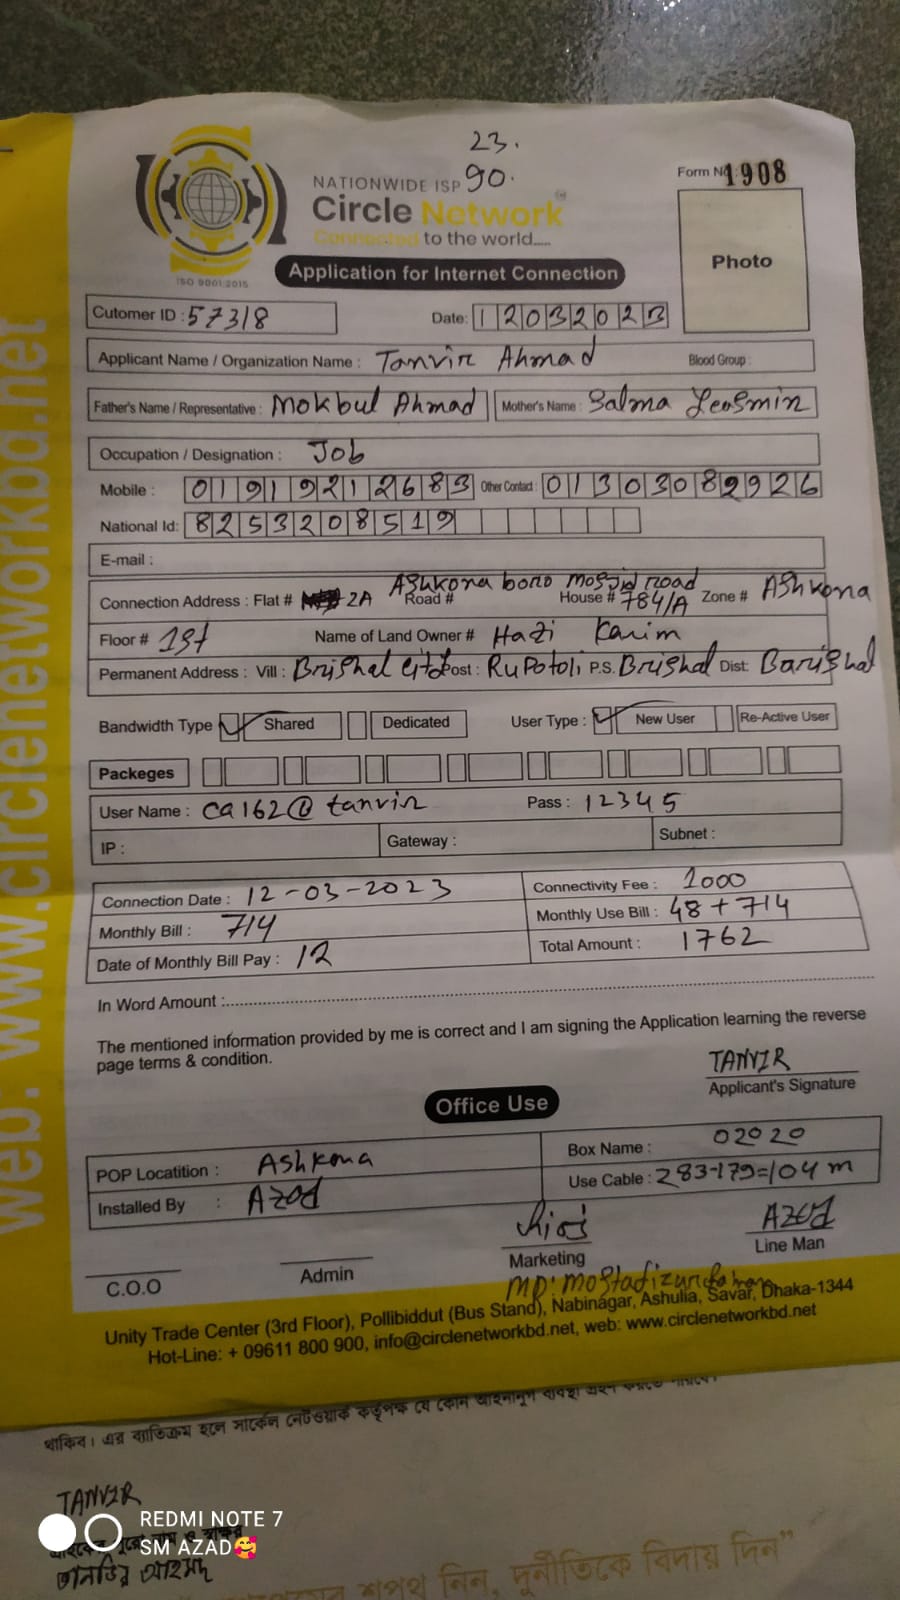 23.
90.
NATIONWIDE ISP
Circle Network
Connected to the world.....
ISO 9001:2015
Form No: 1908
Photo
Application for Internet Connection
Cutomer ID : 57318
Date: 12032023
Applicant Name / Organization Name : Tanvir Ahmad Blood Group :
Father's Name / Representative : Mokbul Ahmad Mother's Name : Salma Yeasmin
Occupation / Designation : Job
Mobile : 01919212683 Other Contact : 01303082926
National Id: 8253208519
E-mail :
Ashkona boro mosjid road
Connection Address : Flat # 2A Road # House # 784/A Zone # Ashkona
Floor # 1st Name of Land Owner # Hazi Karim
Permanent Address : Vill : Brishal Post : Rupotoli P.S. Brishal Dist: Barishal
Bandwidth Type Shared Dedicated User Type : New User Re-Active User
Packeges
User Name : ca162@tanvir Pass : 12345
IP : Gateway : Subnet :
Connection Date : 12-03-2023 Connectivity Fee : 1000
Monthly Bill : 714 Monthly Use Bill : 48+714
Date of Monthly Bill Pay : 12 Total Amount : 1762
In Word Amount :
The mentioned information provided by me is correct and I am signing the Application learning the reverse
page terms & condition.
TANVIR
Applicant's Signature
Office Use
POP Locatition : Ashkona Box Name : 02020
Installed By : Azad Use Cable : 283-179=104 m
AZad
C.O.O Admin Marketing Line Man
MD: Mostafizur
Unity Trade Center (3rd Floor), Pollibiddut (Bus Stand), Nabinagar, Ashulia, Savar, Dhaka-1344
Hot-Line: + 09611 800 900, info@circlenetworkbd.net, web: www.circlenetworkbd.net
web: www.circlenetworkbd.net
থাকিব। এর ব্যতিক্রম হলে সার্কেল নেটওয়ার্ক কর্তৃপক্ষ যে কোন আইনানুগ ব্যবস্থা গ্রহণ করতে পারবে।
TANVIR
তানভির আহমদ
শপথ নিন, দুর্নীতিকে বিদায় দিন”
REDMI NOTE 7
SM AZAD🥰